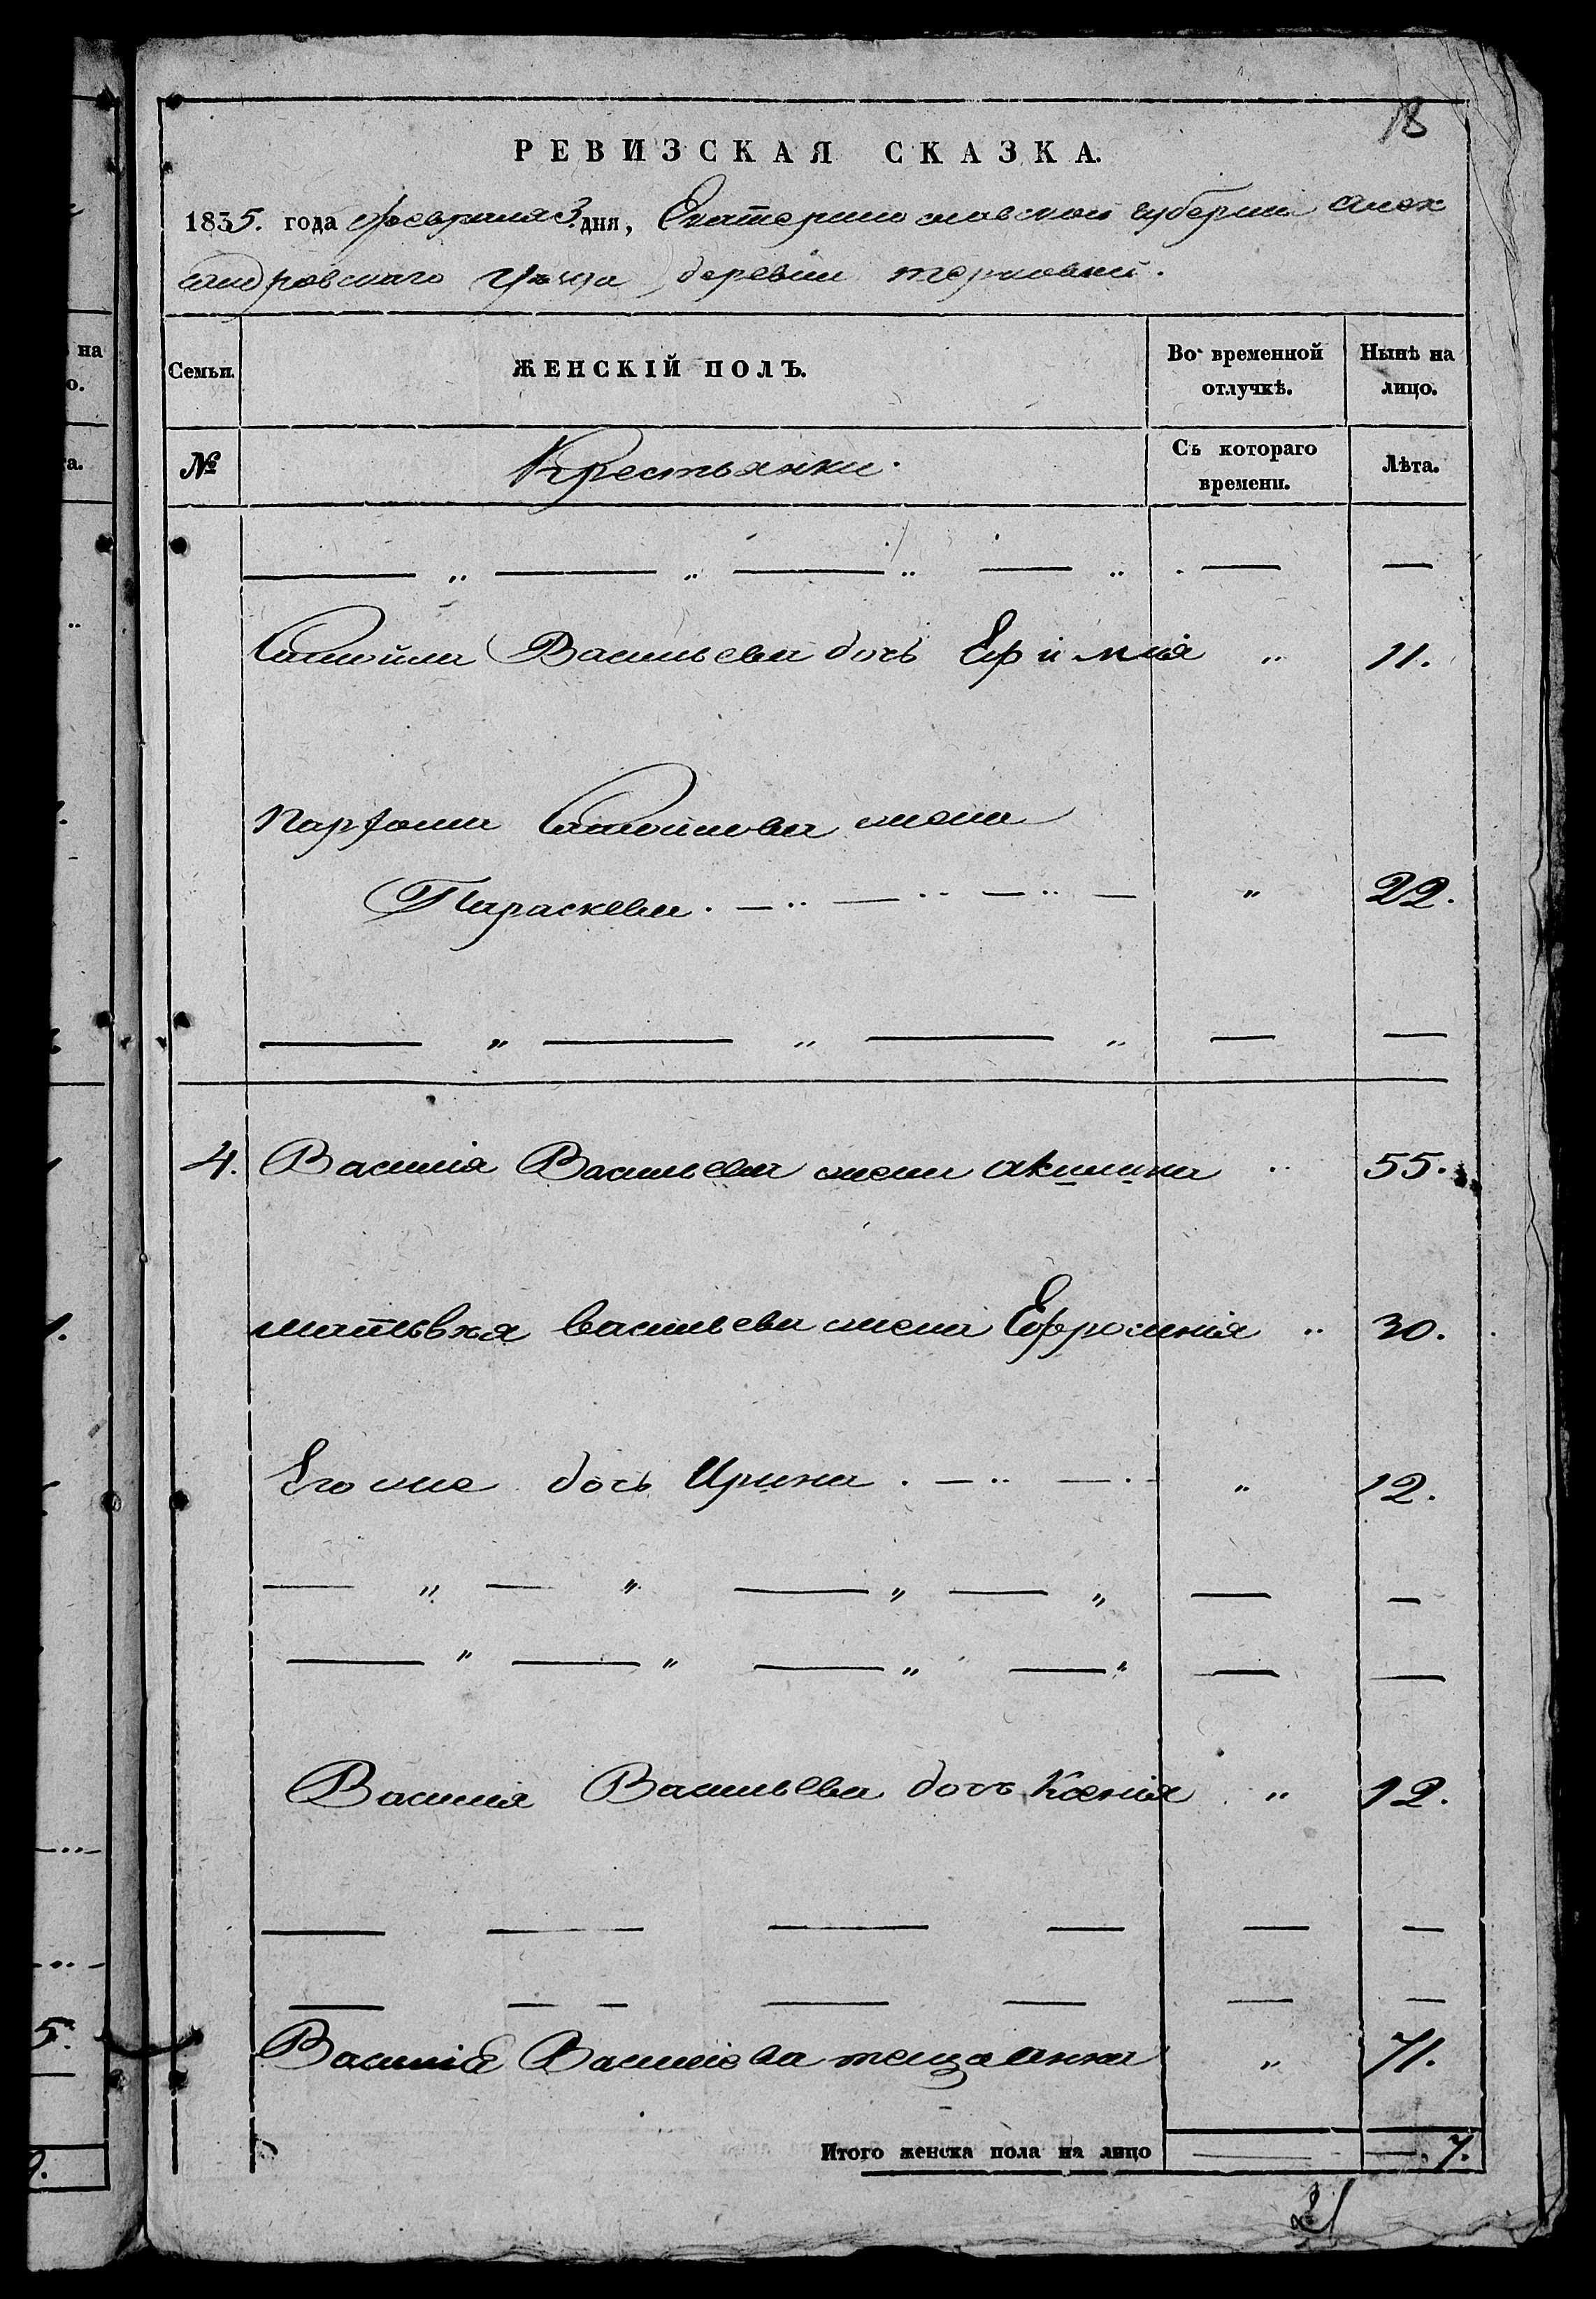 18
РЕВИЗСКАЯ СКАЗКА.
1835. года Февраля 3. дня, Екатеринославской губернии Алек
сандровскаго уѣзда деревни терновки.
Семьи. ЖЕНСКІЙ ПОЛЪ. Во временной отлучкѣ. Нынѣ на лицо.
№ Крестьянки. Съ котораго времени. Лѣта.
Самойла Васильева дочь Ефимія " 11.
Парфома Самойлова жена
Параскева. " 22.
4. Василія Васильева жена акилина " 55.
матьвѣя васильева жена Ефросинія " 30.
Его же дочь Ирина. " 12.
Василія Васильева дочь Ксенія " 12.
Василія Василіева теща анна " 71.
Итого женска пола на лицо 7.
21